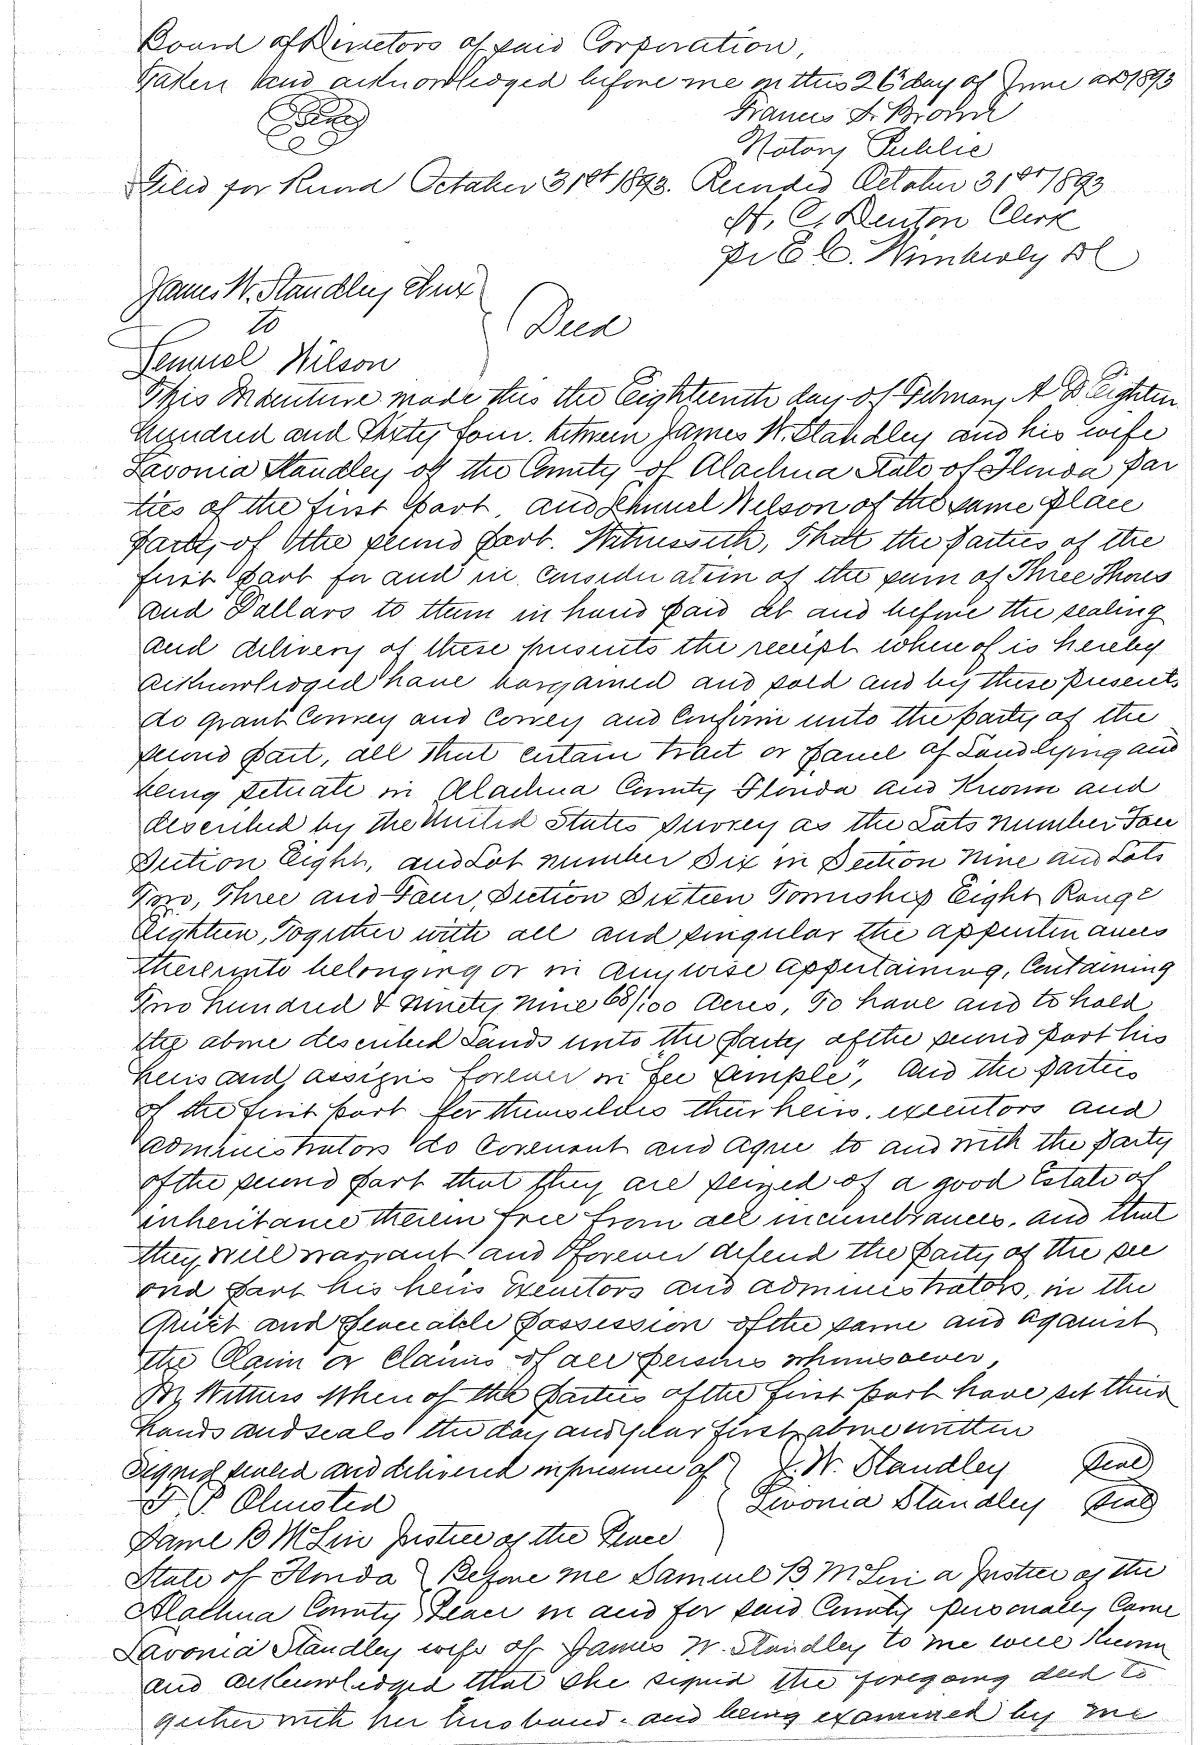 Board of Directors of said Corporation,
Taken and acknowledged before me on this 26th day of June AD 1893
Francis S. Brown
Notary Public
Filed for Record October 31st 1893. Recorded October 31st 1893
H. C. Denton Clerk
pr E C. Wimberly DC
James W. Standley & ux
to
Lemuel Wilson
Deed
This Indenture made this the Eighteenth day of February A D Eighteen
hundred and Sixty four. between James W. Standley and his wife
Lavonia Standley of the County of Alachua State of Florida par
ties of the first part, and Lemuel Wilson of the same place
party of the second part. Witnesseth, That the parties of the
first part for and in consideration of the sum of Three Thous
and Dollars to them in hand paid at and before the sealing
and delivery of these presents the receipt whereof is hereby
acknowledged have bargained and sold and by these presents
do grant Convey and Convey and Confirm unto the party of the
second part, all that certain tract or parcel of Land lying and
being situate in Alachua County Florida and Known and
described by the United States survey as the Lots number Four
Section Eight, and Lot number Six in Section Nine and Lots
Two, Three and Four, Section Sixteen Township Eight Range
Eighteen, Together with all and singular the appurtenances
thereunto belonging or in anywise appertaining, Containing
Two hundred & ninety nine 68/100 Acres, To have and to hold
the above described Lands unto the party of the second part his
heirs and assigns forever in fee simple", And the parties
of the first part for themselves their heirs, executors and
administrators do Covenant and agree to and with the party
of the second part that they are seized of a good Estate of
inheritance therein free from all incumbrances. and that
they will warrant and forever defend the party of the sec
ond part his heirs Executors and administrators, in the
Quiet and peaceable possession of the same and against
the Claim or Claims of all persons whomsoever,
In Witness whereof the parties of the first part have set their
hands and seals the day and year first above written
Signed sealed and delivered in presence of J. W. Standley Seal
F. P. Olmsted Livonia Standley Seal
Saml B McLin Justice of the Peace
State of Florida Before me Samuel B McLin a Justice of the
Alachua County Peace in and for said County personally Came
Lavonia Standley wife of James W. Standley to me well Known
and acknowledged that she signed the foregoing deed to
gether with her husband. and being examined by me